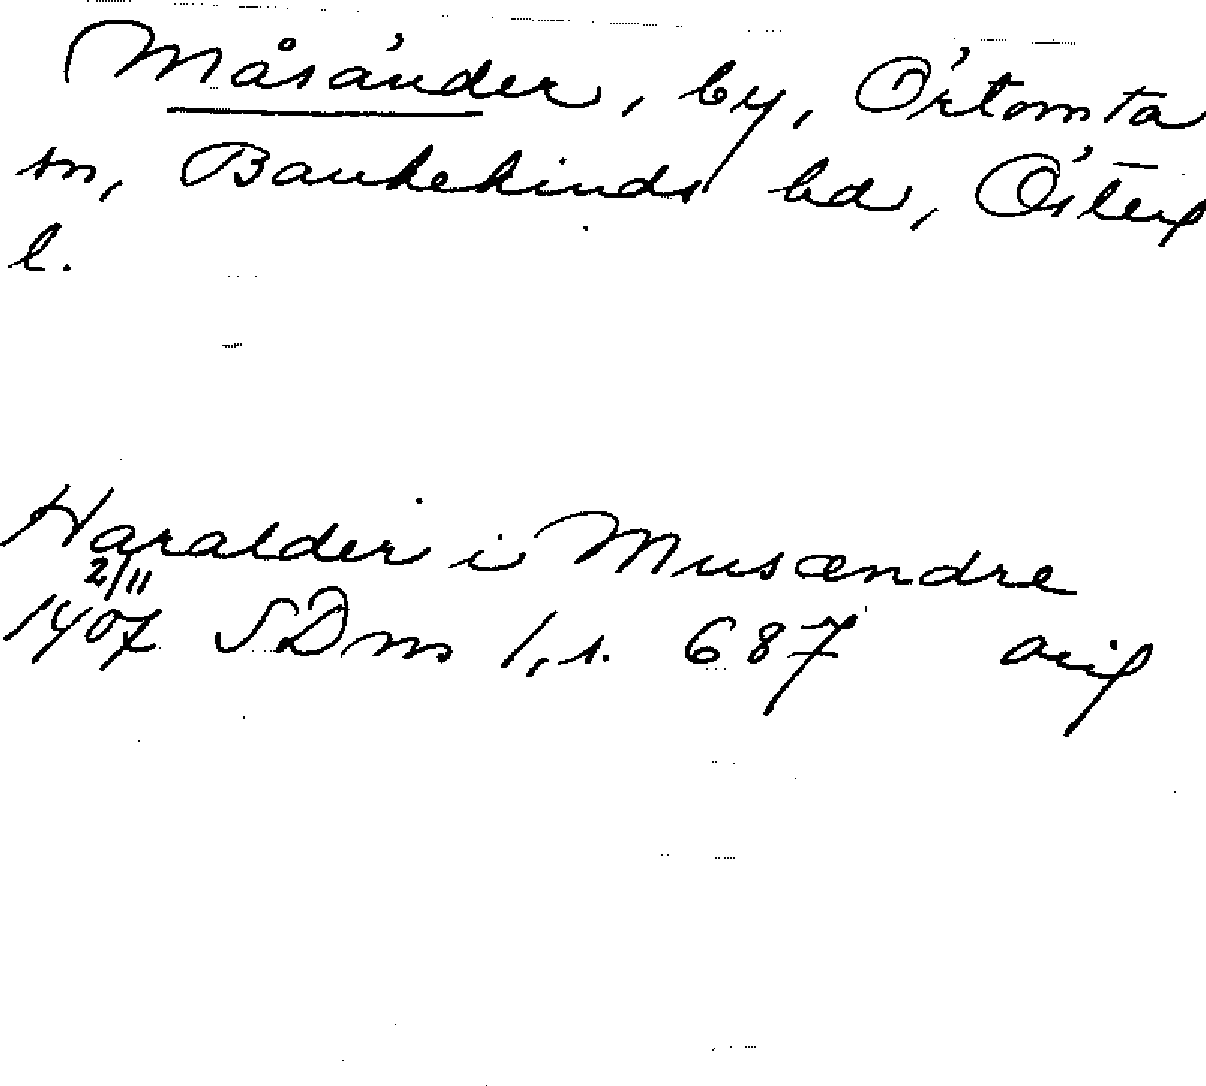 Måsänder, by, Örtomta
sn, Bankekinds hd, Österg
l.
Haralder i Musændre
2/11
1407 SDns 1, s. 687 orig